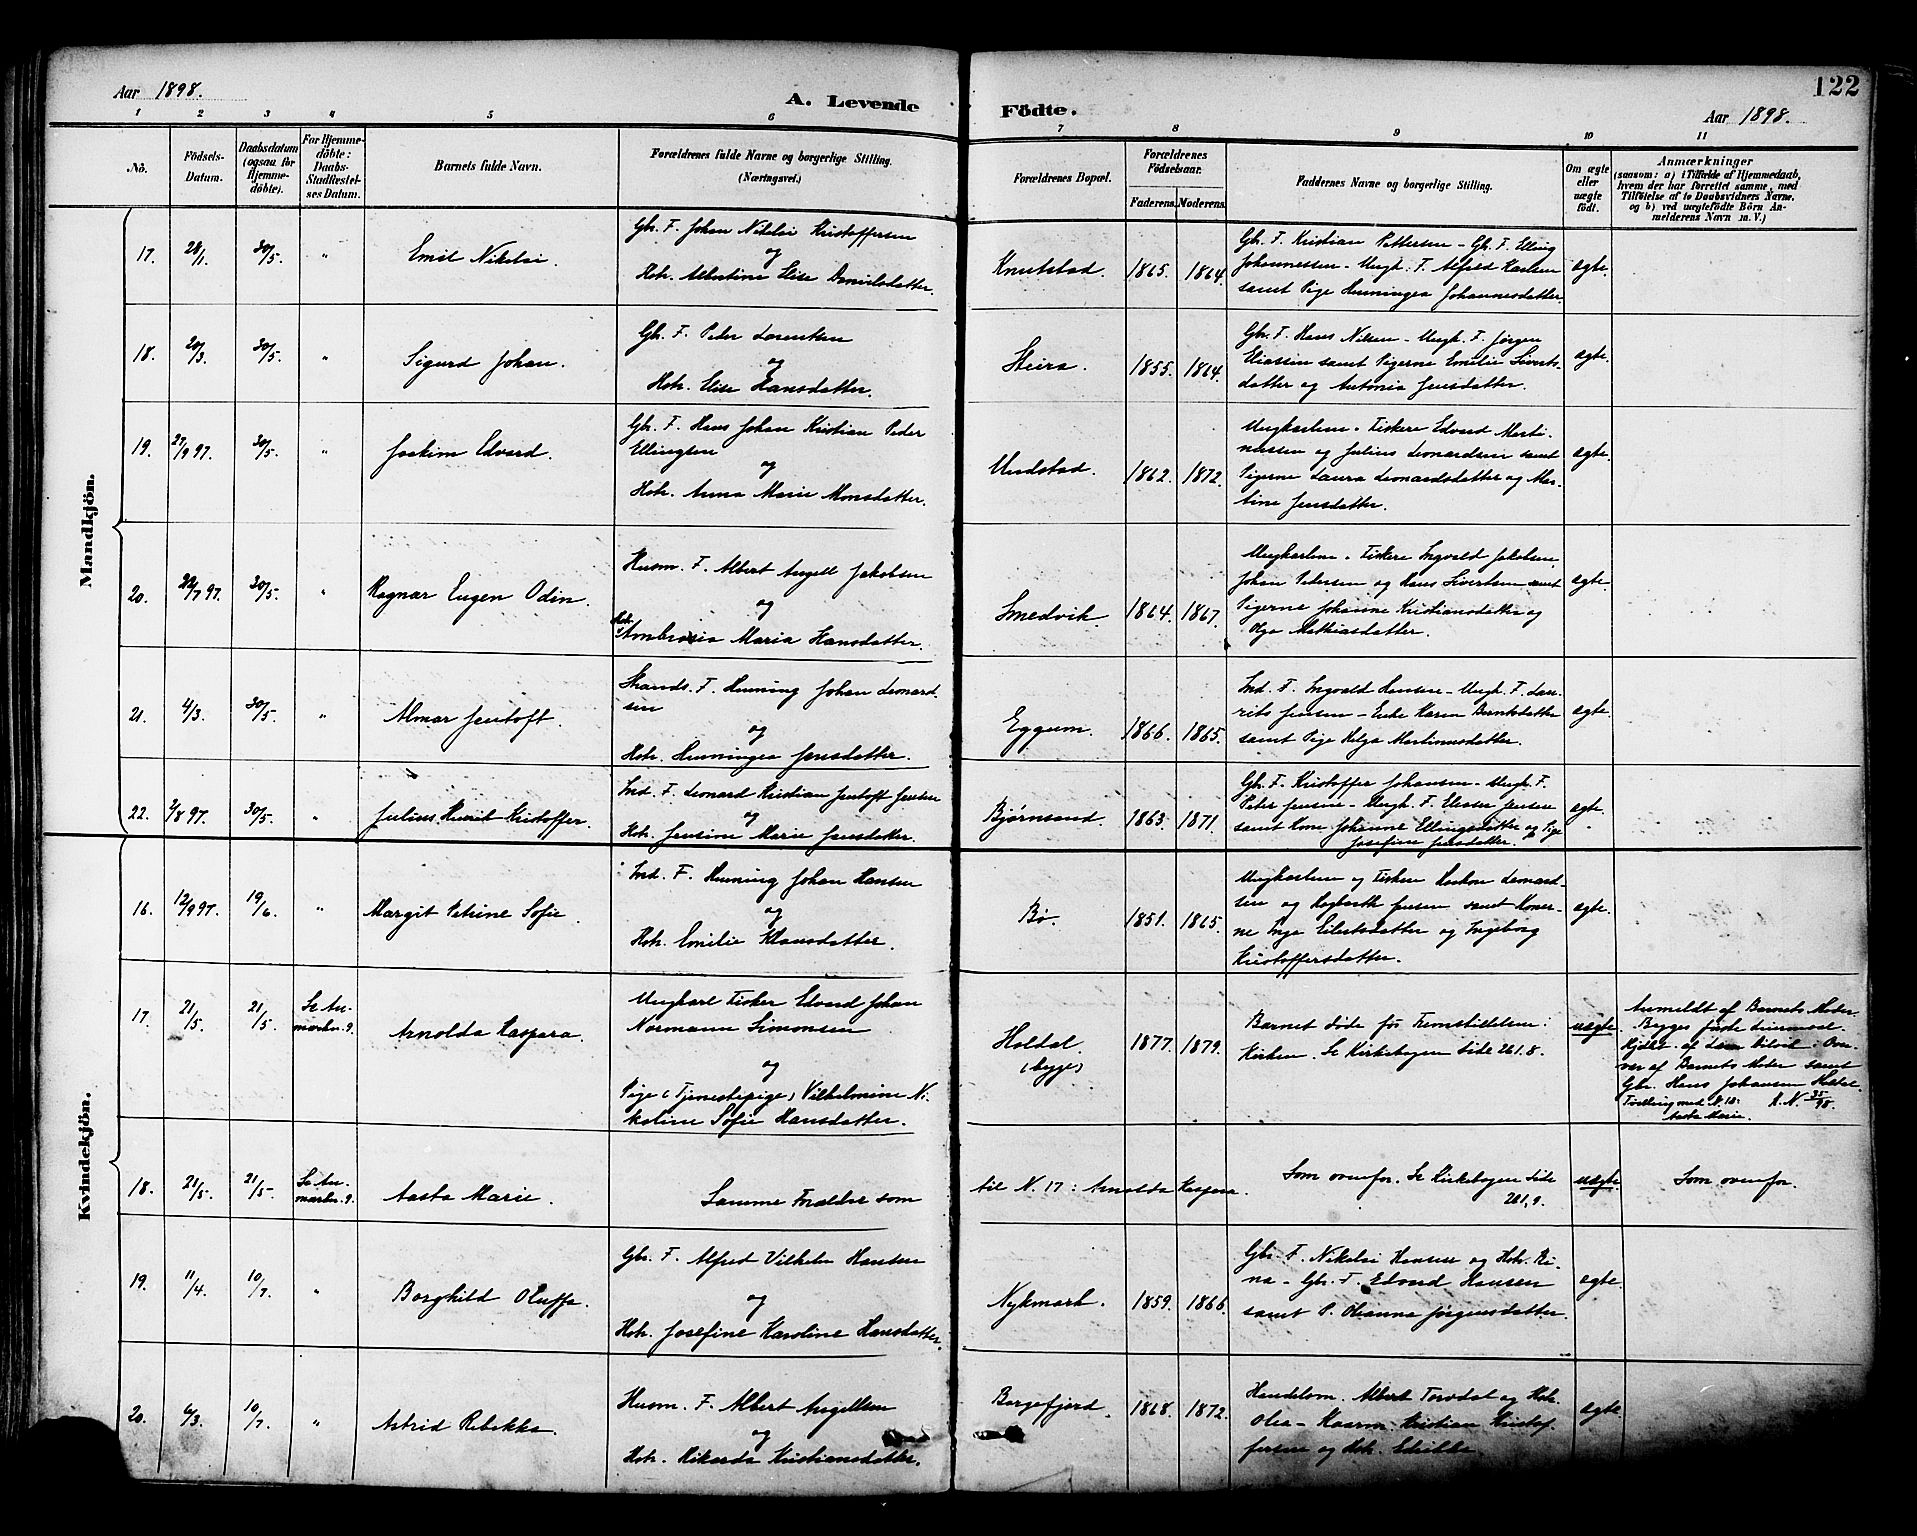 122
Aar 1898.
A. Levende Födte.
Aar 1898.
1 2 3 4 5 6 7 8 9 10 11
No.
Födsels-Datum.
Daabsdatum (ogsaa for Hjemme-döbte).
For Hjemme-döbte: Daabs-Stadfæstel-ses Datum.
Barnets fulde Navn.
Forældrenes fulde Navne og borgerlige Stilling.
(Næringsvei.)
Forældrenes Bopæl.
Forældrenes Födselsaar.
Faderens. Moderens.
Faddernes Navne og borgerlige Stilling.
Om ægte eller uægte födt.
Anmærkninger
(saasom: a) i Tilfælde af Hjemmedaab,
hvem der har forrettet samme, med
Tilföielse af to Daabsvidners Navne,
og b) ved uægtefödte Börn An-
melderens Navn m. V.)
Mandkjön.
17. 28/1. 30/5. " Emil Nikolai
Gbr. F. Johan Nikolai Kristoffersen
og
Hstr. Albertine Elise Danielsdatter.
Knutstad. 1865. 1864.
Gbr. F. Kristian Pettersen - Gbr. F. Elling
Johannessen - Ungk. F. Alfred Karlsen
samt Pige Henningea Johannesdatter.
ægte.
18. 20/3. 30/5. " Sigurd Johan.
Gbr. F. Peder Lorentsen
og
Hstr. Elise Hansdatter.
Steira. 1855. 1864.
Gbr. F. Hans Nilsen - Ungk. F. Jørgen
Eliassen samt Pigerne Emilie Siverts-
datter og Antonia Jensdatter.
ægte.
19. 27/9 97. 30/5. " Joakim Edvard.
Gbr. F. Hans Johan Kristian Peder
Ellingsen
og
Hstr. Anna Marie Monsdatter.
Undstad. 1862. 1872.
Ungkarlene, Fiskere Edvard Marti-
nussen og Julius Leonardsen samt
Pigerne Laura Leonardsdatter og Mar-
tine Jensdatter.
ægte.
20. 22/7 97. 30/5. " Ragnar Eugen Odin.
Husm. F. Albert Angell Jakobsen
og
Hstr. Ambrosia Maria Hansdatter.
Smedvik. 1864. 1867.
Ungkarlene, Fiskere Ingvald Jakobsen
Johan Pedersen og Hans Sivertsen samt
Pigerne Johanne Kristiansdatter og
Olga Mathiasdatter.
ægte.
21. 4/3. 30/5. " Almar Jentoft.
Strands. F. Henning Johan Leonard-
sen
og
Hstr. Henningea Jensdatter.
Eggum. 1866. 1865.
Ind. F. Ingvald Hansen - Ungk. F. Lau-
rits Jensen - Enke Karen Berntsdatter
samt Pige Helga Martinusdatter.
ægte.
22. 2/8 97. 30/5. " Julius Kristoffer.
Ind. F. Leonard Kristian Jentoft Jensen
og
Hstr. Jensine Marie Jensdatter.
Bjørnsand. 1863. 1871.
Gbr. F. Kristoffer Johansen - Ungk. F.
Peter Jensen - Ungk. F. Jensen
samt Kone Johanne Ellingsdatter og Pige
Josefine Jensdatter.
ægte.
Kvindekjön.
16. 12/9 97. 19/6. " Margit Petrine Sofie.
Ind. F. Henning Johan Hansen
og
Hstr. Emilie Klausdatter.
Bø. 1851. 1865.
Ungkarlene og Fiskere Haakon Leonard-
sen og Hagbarth Jensen samt Koner-
ne Inga Eilertsdatter og Ingeborg
Kristoffersdatter.
ægte.
17. 21/5. 21/5. Se An-
mærkn. 9. Arnolda Kaspara.
Ungkarl Fisker Edvard Johan
Normann Simonsen
og
Pige (Tjenestepige) Vilhelmine Ni-
koline Sofie Hansdatter.
Holdal. (begge) 1877. 1879.
Barnet døde før Fremstillelsen i
Kirken. Se Kirkebogen Side 261.8.
uægte.
Anmeldt af Barnets Moder.
Begges første Leiermaal.
Hjdbt. af
af Barnets Moder samt
Gbr. Hans Johansen Holdal.
Tvilling med N. 18:
Aasta Marie.
18. 21/5. 21/5. Se An-
mærkn. 9. Aasta Marie.
Samme Forældre som til N. 17: Arnolda Kaspara.
Som ovenfor. Se Kirkebogen Side
261,9.
uægte.
Som ovenfor.
19. 11/4. 10/7. " Borghild Oluffa.
Gbr. F. Alfred Vilhelm Hansen
og
Hstr. Josefine Karoline Hansdatter.
Nykmark. 1859. 1866.
Gbr. F. Nikolai Hansen og Hstr. Ri-
na - Gbr. F. Edvard Hansen
samt P. Oleanna Jørgensdatter.
ægte.
20. 6/3. 10/7. " Astrid Rebekka.
Husm. F. Albert Angellsen
og
Hstr. Rikarda Kristiansdatter.
Borgefjord. 1868. 1872.
Handelsm. Albert Torsdal og Hstr.
Olea - Kaarm. Kristian Kristof-
fersen og Hstr.
ægte.